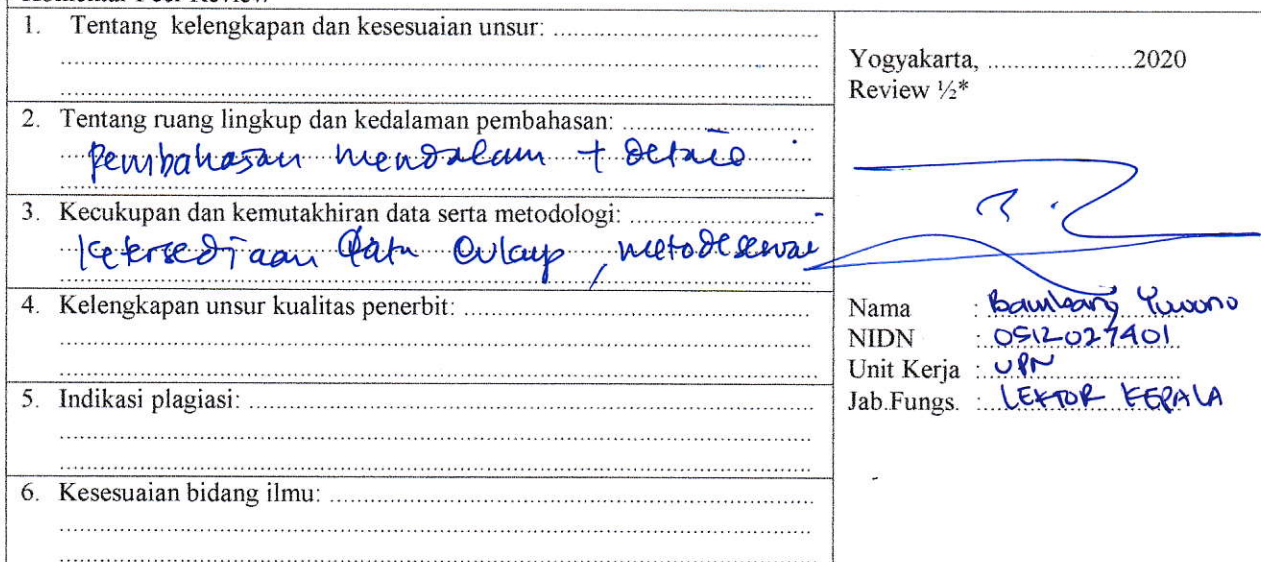 1. Tentang kelengkapan dan kesesuaian unsur: ......................................
2. Tentang ruang lingkup dan kedalaman pembahasan: ...........................
Pembahasan mendalam + detail
3. Kecukupan dan kemutakhiran data serta metodologi: ..........................
Ketersediaan data cukup, metode sesuai
4. Kelengkapan unsur kualitas penerbit: ..................................................
5. Indikasi plagiasi: ................................................................................
6. Kesesuaian bidang ilmu: .....................................................................
Yogyakarta, ......................2020
Review ½*
Nama : Bambang Yuwono
NIDN : 0512027401
Unit Kerja : UPN
Jab.Fungs. : LEKTOR KEPALA